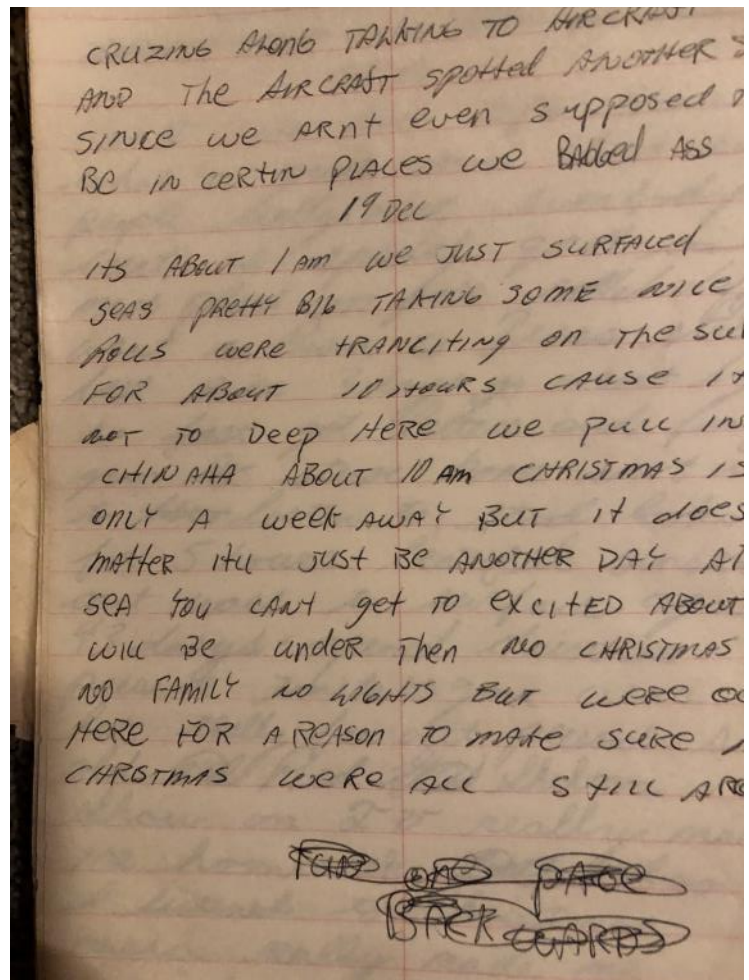 CRUZING ALONG TALKING TO AIRCRAFT
AND THE AIRCRAFT SPOTTED ANOTHER S
SINCE WE ARNT EVEN SUPPOSED
BE IN CERTIN PLACES WE BALLED ASS
19 DEC
ITS ABOUT 1 AM WE JUST SURFACED
SEAS PRETTY BIG TAKING SOME NICE
ROLLS WERE TRANCITING ON THE SU
FOR ABOUT 10 HOURS CAUSE IT
NOT TO DEEP HERE WE PULL IN
CHINAHA ABOUT 10 AM CHRISTMAS IS
ONLY A WEEK AWAY BUT IT DOES
MATTER ITLL JUST BE ANOTHER DAY AT
SEA YOU CANT GET TO EXCITED ABOUT
WILL BE UNDER THEN NO CHRISTMAS
NO FAMILY NO LIGHTS BUT WERE
HERE FOR A REASON TO MAKE SURE
CHRISTMAS WERE ALL STILL
ON PAGE
BACK WARDS